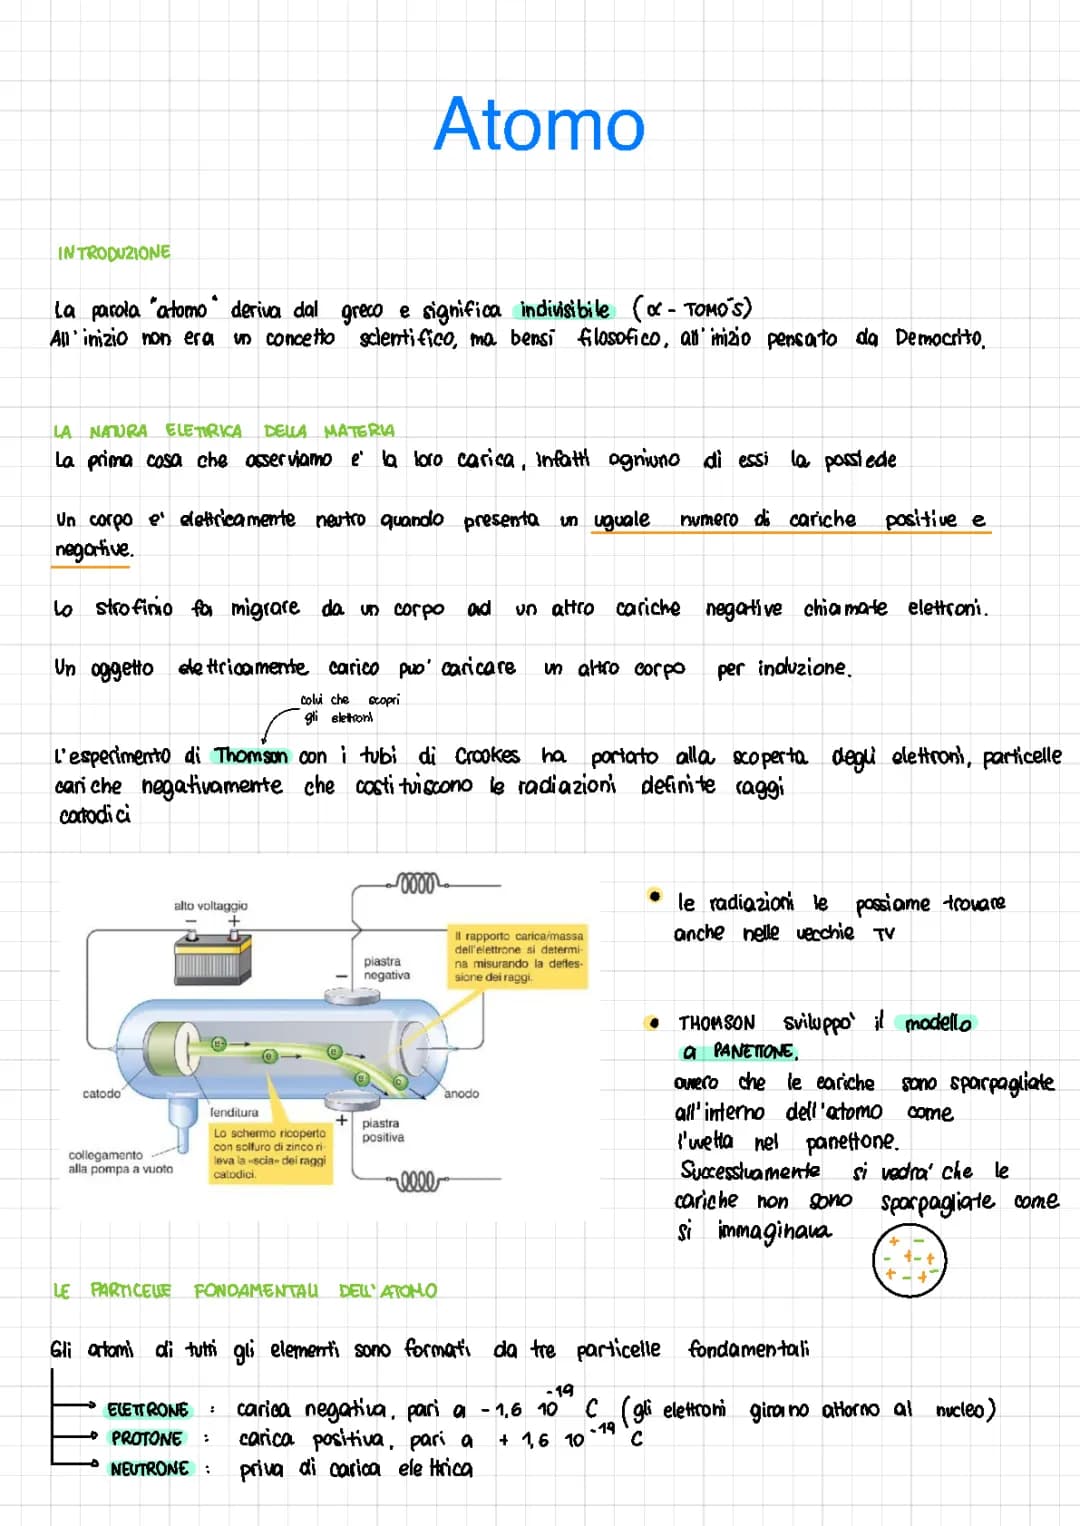 Atomo
INTRODUZIONE
La parola "atomo" deriva dal greco e significa indivisibile (α - TOMO'S)
All'inizio non era un concetto scientifico, ma bensì filosofico, all'inizio pensato da Democrito.
LA NATURA ELETTRICA DELLA MATERIA
La prima cosa che osserviamo e' la loro carica, infatti ogniuno di essi la possiede
Un corpo e' elettricamente neutro quando presenta un uguale numero di cariche positive e
negative.
Lo strofinio fa migrare da un corpo ad un altro cariche negative chiamate elettroni.
Un oggetto elettricamente carico puo' caricare un altro corpo per induzione.
colui che scopri
gli elettroni
L'esperimento di Thomson con i tubi di Crookes ha portato alla scoperta degli elettroni, particelle
cariche negativamente che costituiscono le radiazioni definite raggi
catodici
alto voltaggio
- +
piastra
negativa
-
Il rapporto carica/massa
dell'elettrone si determi-
na misurando la defles-
sione dei raggi.
e e e e e
catodo
anodo
fenditura
+ piastra
positiva
Lo schermo ricoperto
con solfuro di zinco ri-
leva la «scia» dei raggi
catodici.
collegamento
alla pompa a vuoto
• le radiazioni le possiame trovare
anche nelle vecchie TV
• THOMSON sviluppo' il modello
a PANETTONE,
overo che le cariche sono sparpagliate
all'interno dell'atomo come
l'uvetta nel panettone.
Successivamente si vedra' che le
cariche non sono sparpagliate come
si immaginava
+ -
- + - +
+ - + -
LE PARTICELLE FONDAMENTALI DELL'ATOMO
Gli atomi di tutti gli elementi sono formati da tre particelle fondamentali
ELETTRONE : carica negativa, pari a -1,6 10⁻¹⁹ C (gli elettroni girano attorno al nucleo)
PROTONE : carica positiva, pari a + 1,6 10⁻¹⁹ C
NEUTRONE : priva di carica elettrica